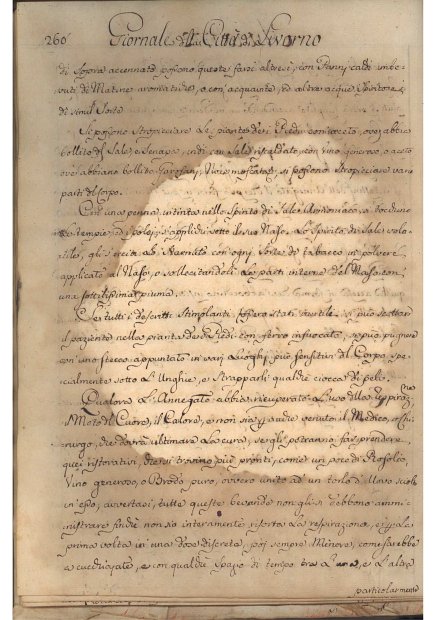 266 Giornale della Città di Livorno
di sopra accennate possono queste farsi altresì, con Panni caldi imbe-
vuti di Materie aromatiche, o con acquavite, ed altre acque Spiritose
di simil Sorte
Si possono Stropicciare le piante dei Piedi con aceto, ove abbia
bollito del Sale, e Senapa, indi con Sale riscaldato con vino generoso, o aceto
ove abbiano bollito Garofani, Noci moscate, si possono stropicciare varie
parti del Corpo.
Con una penna intinta nello Spirito di Sale Armoniaco, si
le tempie, ed i polsi, e applichi sotto il suo Naso. Lo Spirito di Sale vola-
tile, gli ecciti lo Starnuto con ogni Sorte di tabacco in polvere
applicato al Naso, o sollecitandoli le parti interne del Naso con
una sottilissima piuma.
Se tutti i descritti Stimolanti fossero stati inutili, si può scottar
il paziente nelle piante dei Piedi con ferro infuocato, si può pugnere
con uno stecco appuntato in varj Luoghi più sensitivi del Corpo spe-
cialmente sotto l'Unghie, e Strapparli qualche ciocca di peli.
Qualora l'Annegato abbia ricuperato l'uso della respiraz.ne
Moto del Cuore, il Calore, e non sia per anche venuto il Medico, o Chi-
rurgo, che dovrà ultimare la cura, se gli potranno far prendere
quei ristorativi, che si trovino più pronti, come un poco di Rosolio
Vino generoso, o Brodo puro, ovvero unito ad un torlo d'Uovo sciolto
in esso, avvertasi, tutte queste bevande non gli si debbono ammi-
nistrare finchè non sia interamente risorta la respirazione, e
prima volta in una dose discreta, poi sempre Minore, come sarebbe
a cucchiajate, e con qualche Spazio di tempo tra l'una, e l'altra
particolarmente